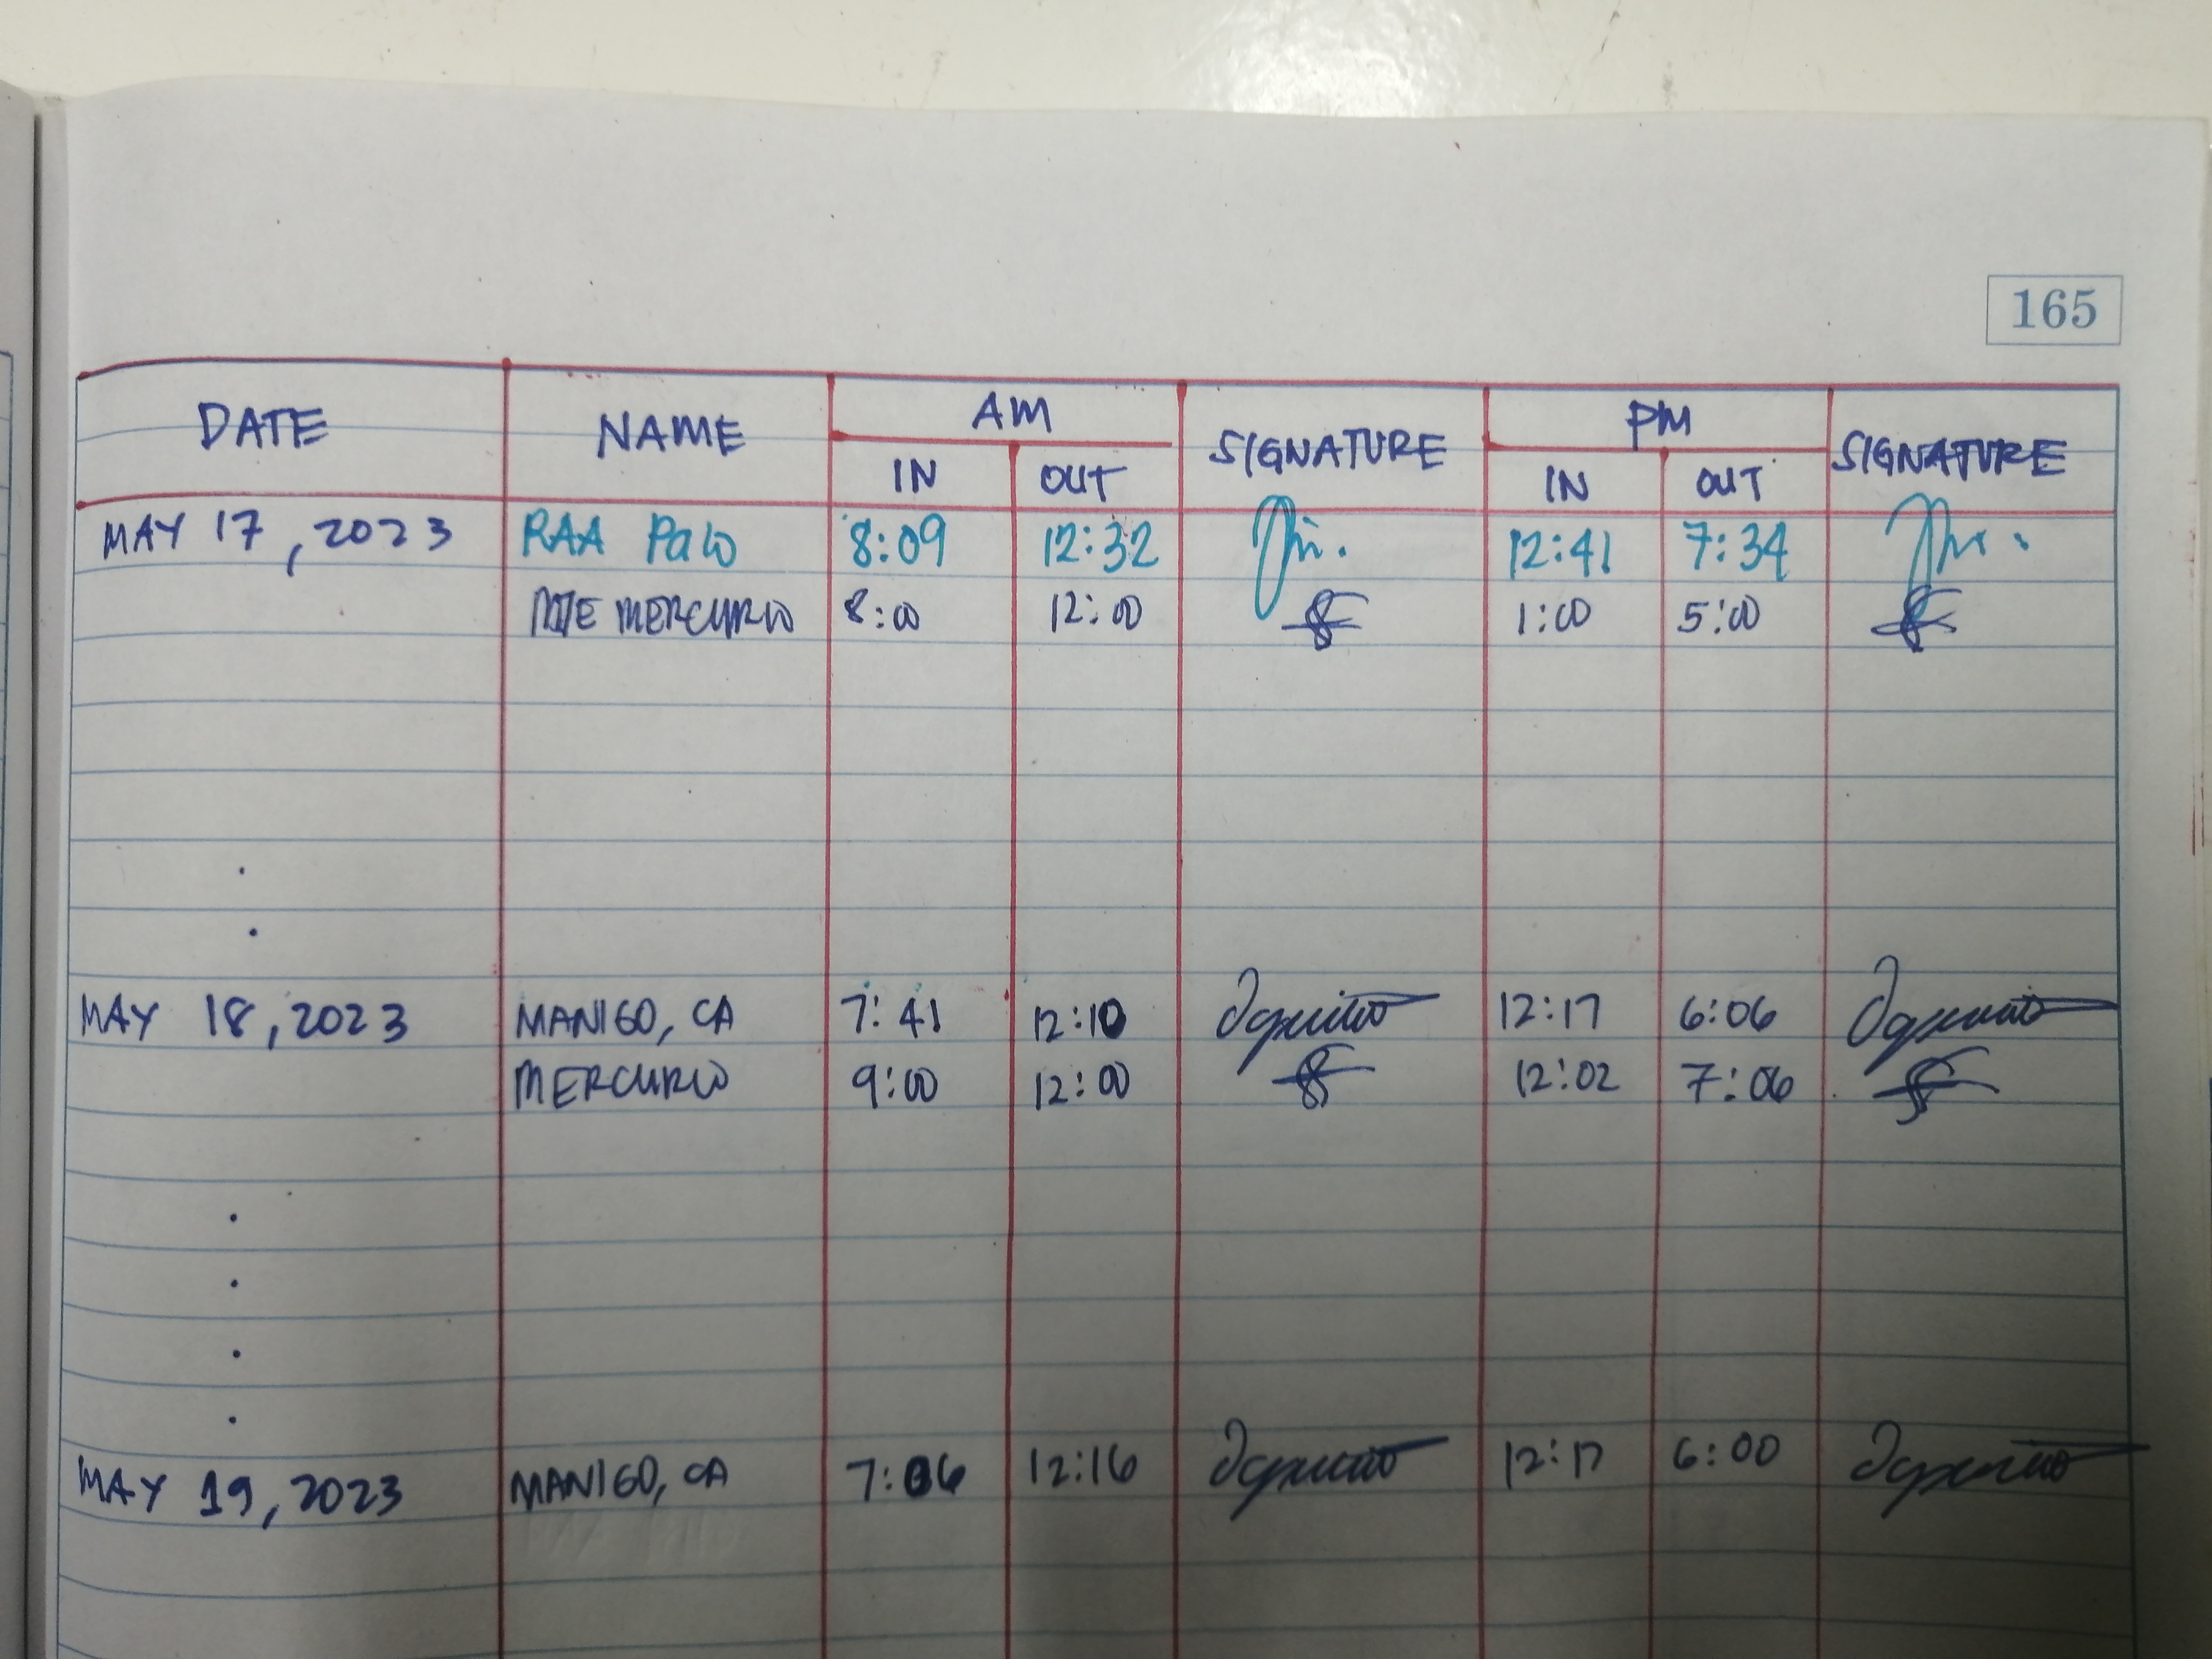 165
DATE NAME AM SIGNATURE PM SIGNATURE
IN OUT IN OUT
MAY 17, 2023 RAA Palo 8:09 12:32 12:41 7:34
MERCURIO 8:00 12:00 1:00 5:00
MAY 18, 2023 MANIGO, CA 7:41 12:10 12:17 6:06
MERCURIO 9:00 12:00 12:02 7:06
MAY 19, 2023 MANIGO, CA 7:06 12:16 12:17 6:00